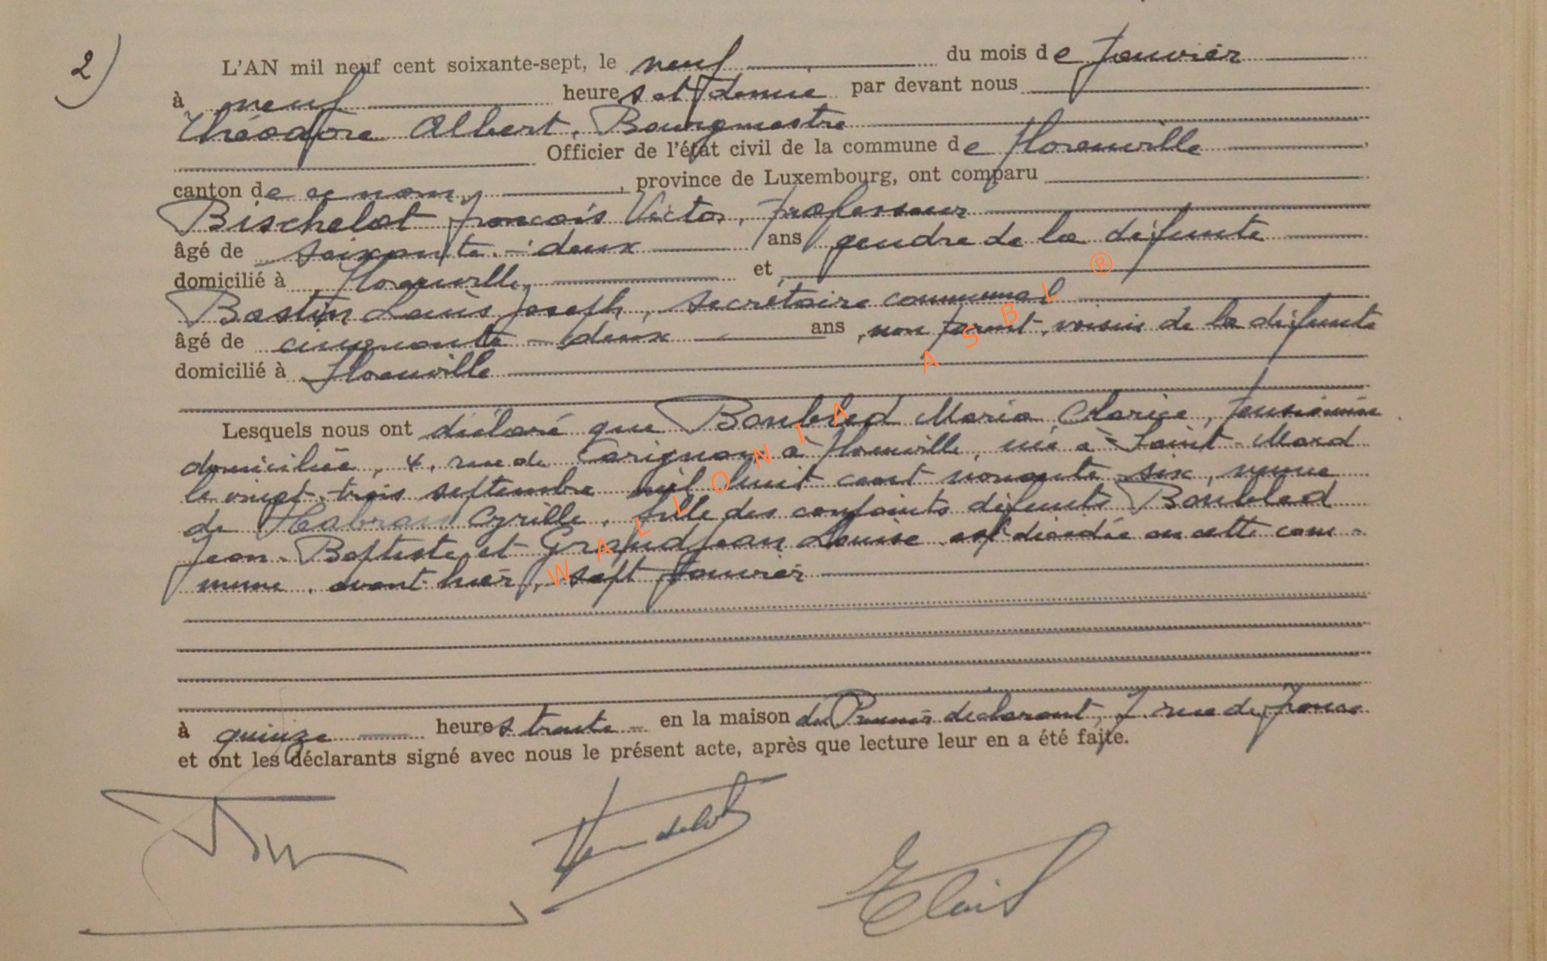 2)
L'AN mil neuf cent soixante-sept, le neuf du mois de Janvier
à neuf heures et demie par devant nous
Théodore Albert, Bourgmestre
Officier de l'état civil de la commune de Florenville
canton de ce nom, province de Luxembourg, ont comparu
Bischelot François Victor, Professeur
âgé de soixante-deux ans gendre de la défunte
domicilié à Florenville et
Bastin Louis Joseph, secrétaire communal
âgé de cinquante-deux ans, non parent, voisin de la défunte
domicilié à Florenville
Lesquels nous ont déclaré que Boubled Maria Clarice, pensionnée
domiciliée, 4, rue de Carignan à Florenville, née à Saint-Mard
le vingt-trois septembre mil huit cent nonante six, veuve
de Habran Cyrille, fille des conjoints défunts Boubled
Jean-Baptiste et Grandjean Louise est décédée en cette com-
mune, avant-hier, sept Janvier
à quinze heures trente en la maison du Premier déclarant, 7 rue de France
et ont les déclarants signé avec nous le présent acte, après que lecture leur en a été faite.
WALLONIA ASBL ®